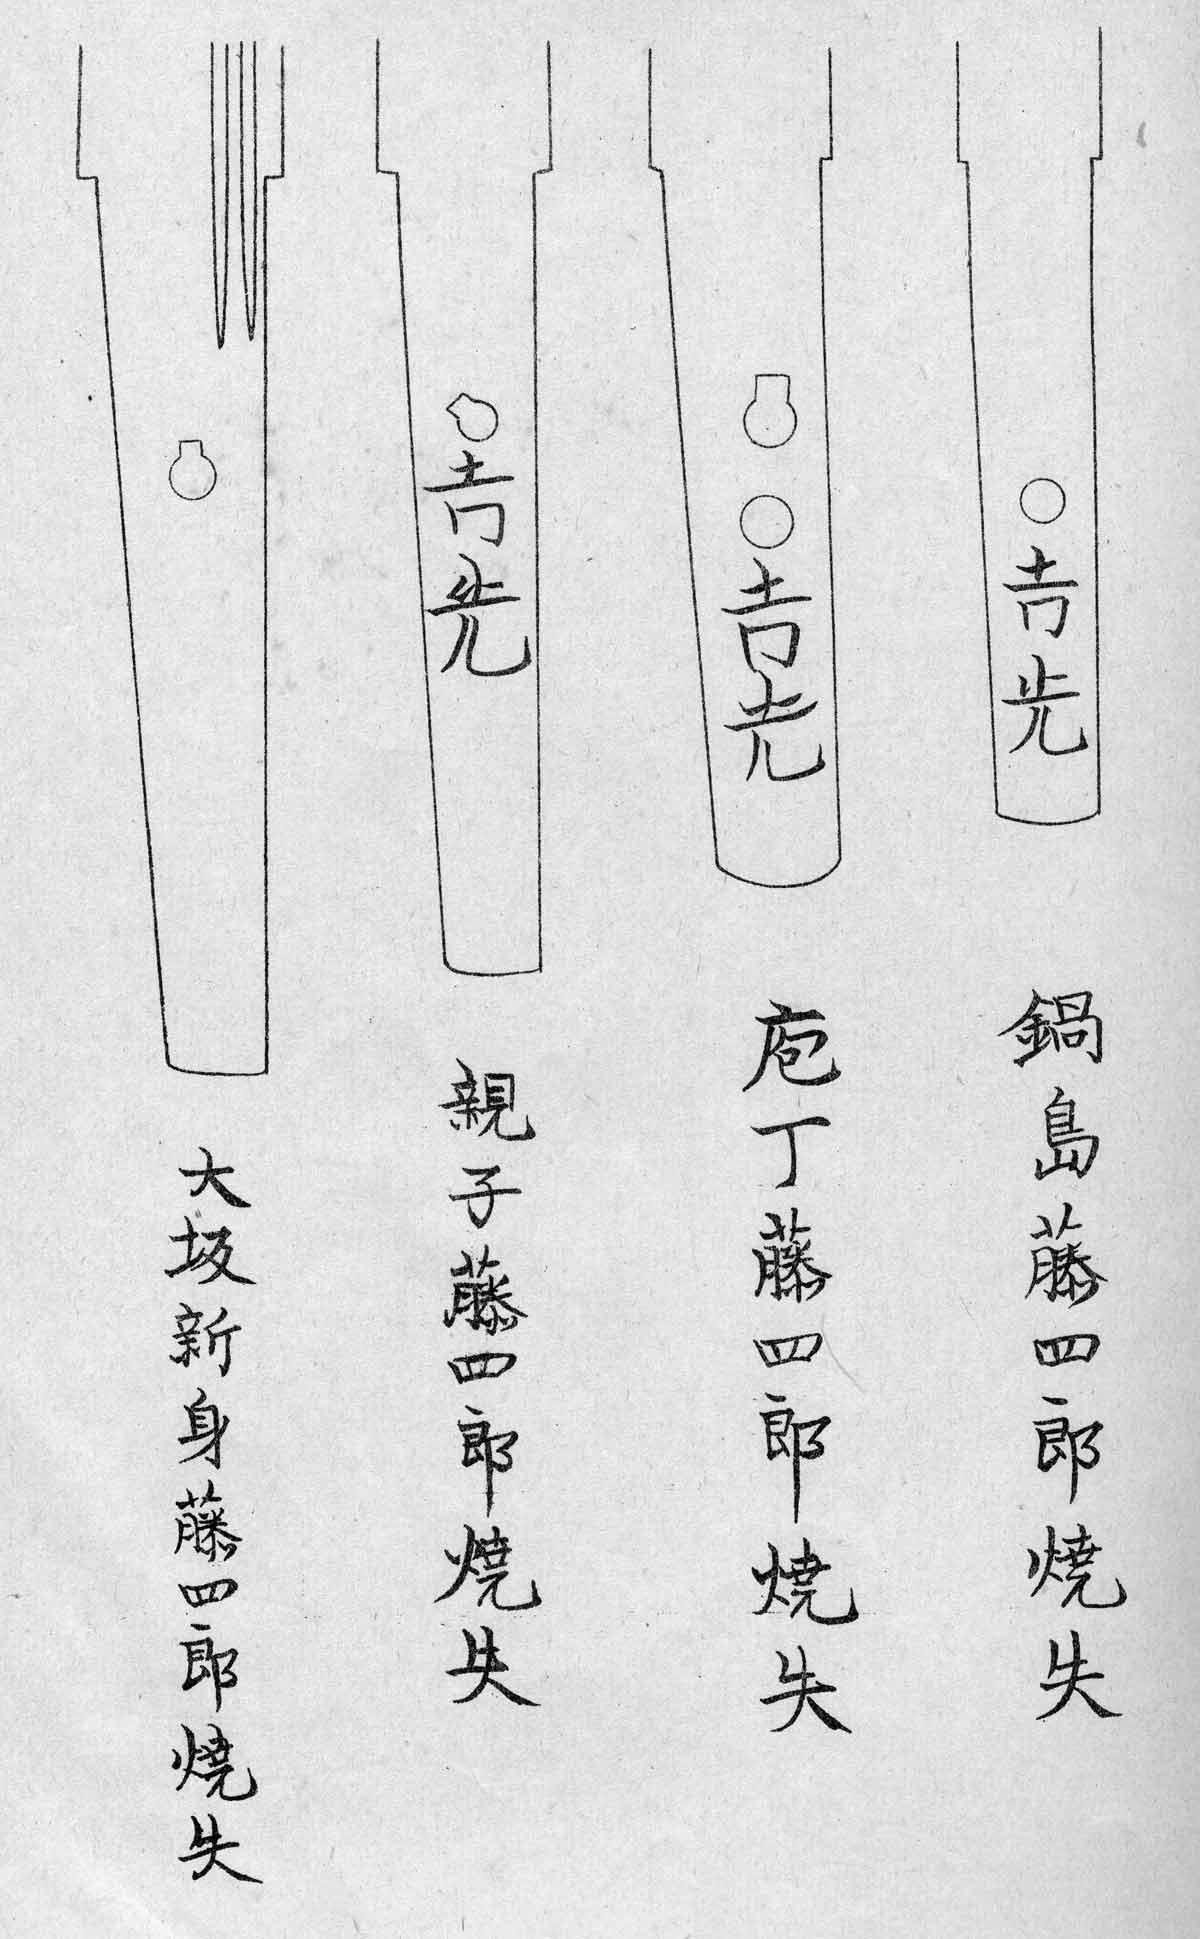 吉光
鍋島藤四郎焼失
吉光
庖丁藤四郎焼失
吉光
親子藤四郎焼失
大坂新身藤四郎焼失